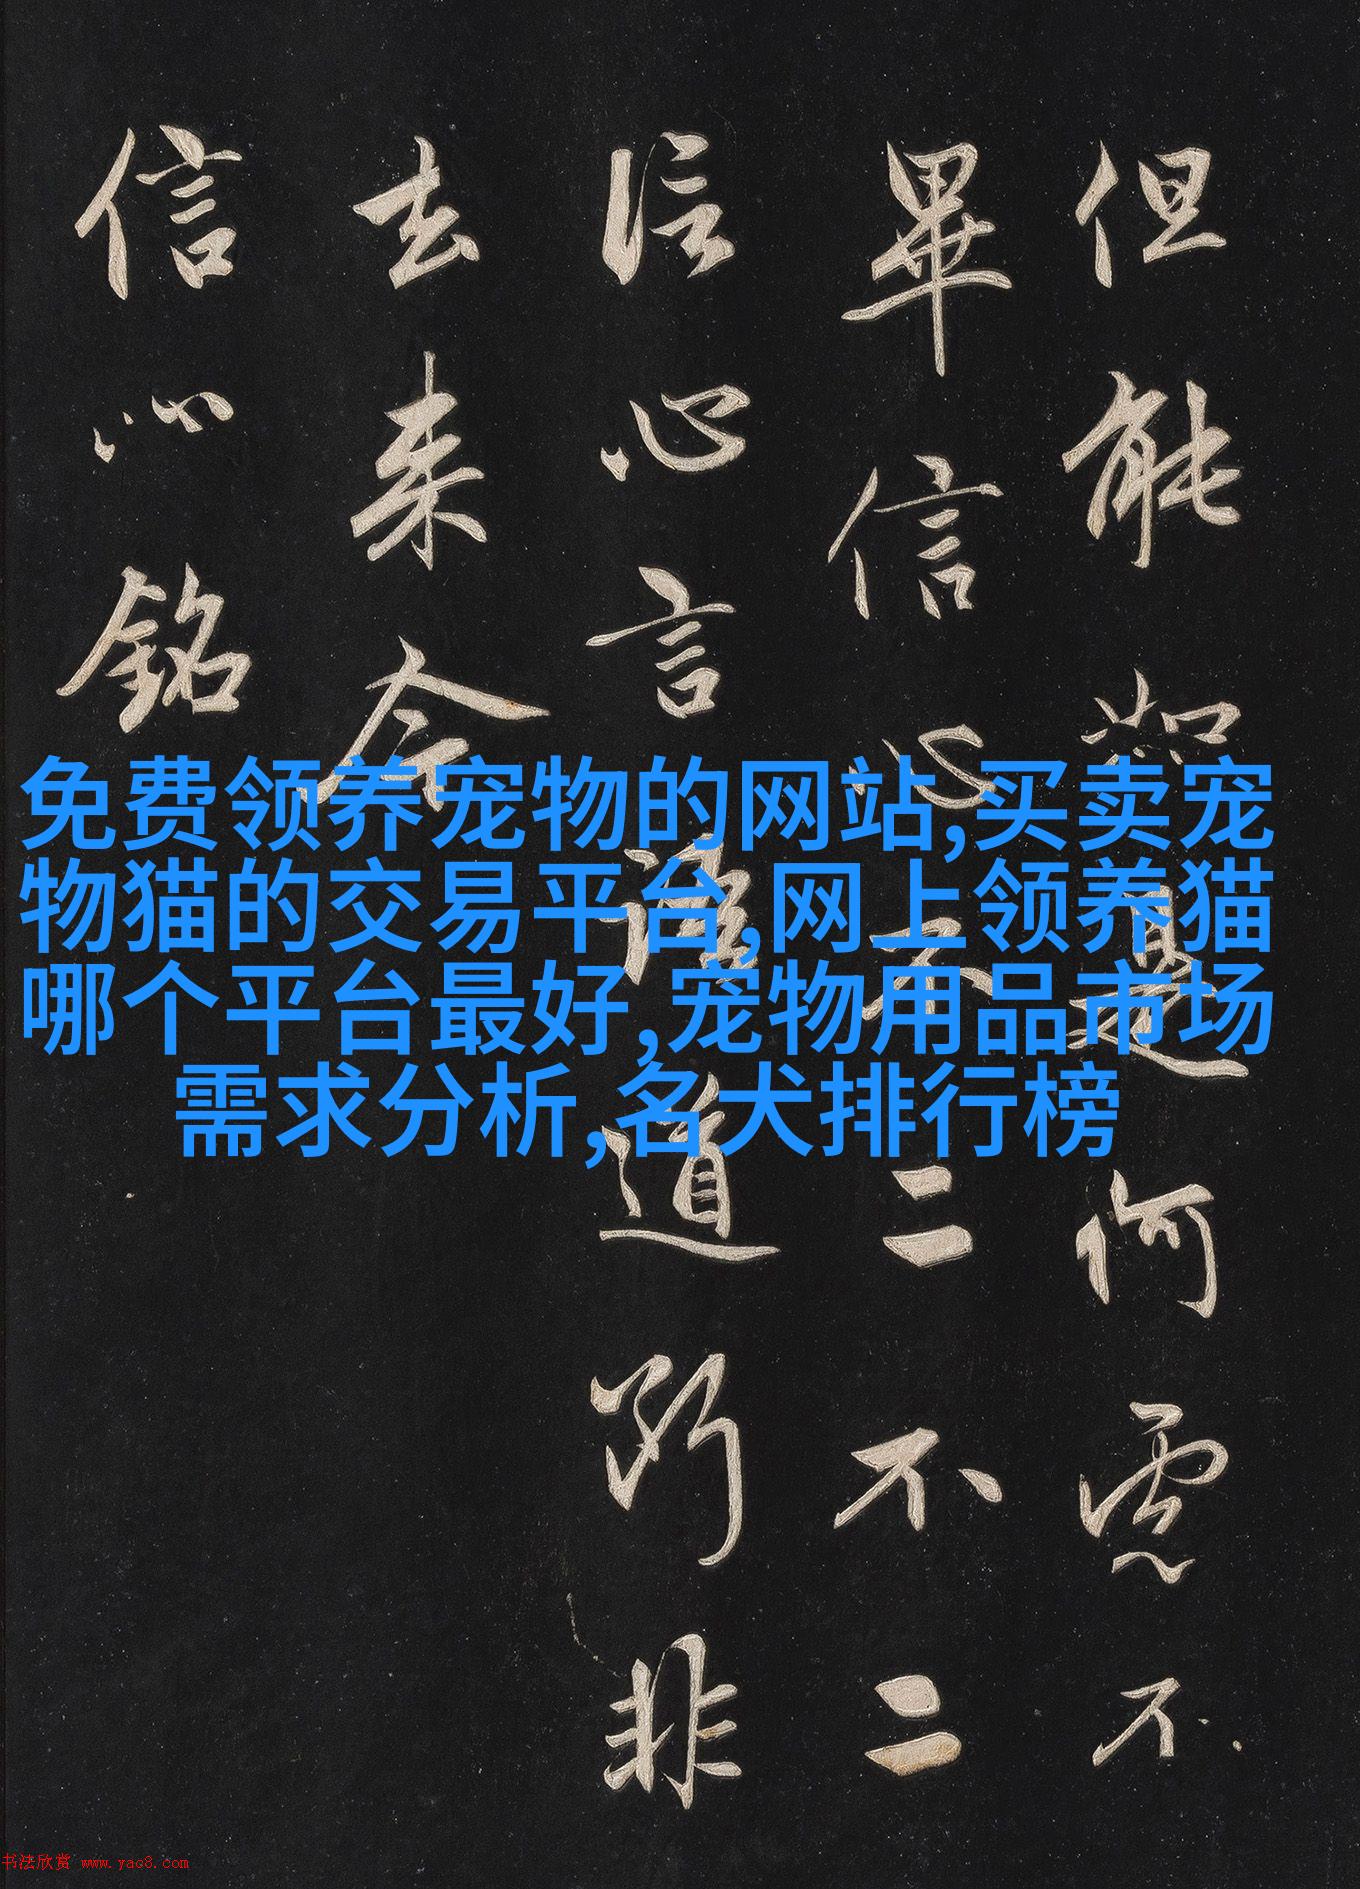 但能如是何慮不
畢信心不二不二
信心言語道斷非
去来今
信心銘
免费领养宠物的网站,买卖宠
物猫的交易平台,网上领养猫
哪个平台最好,宠物用品市场
需求分析,名犬排行榜
书法欣赏 www.yac8.com